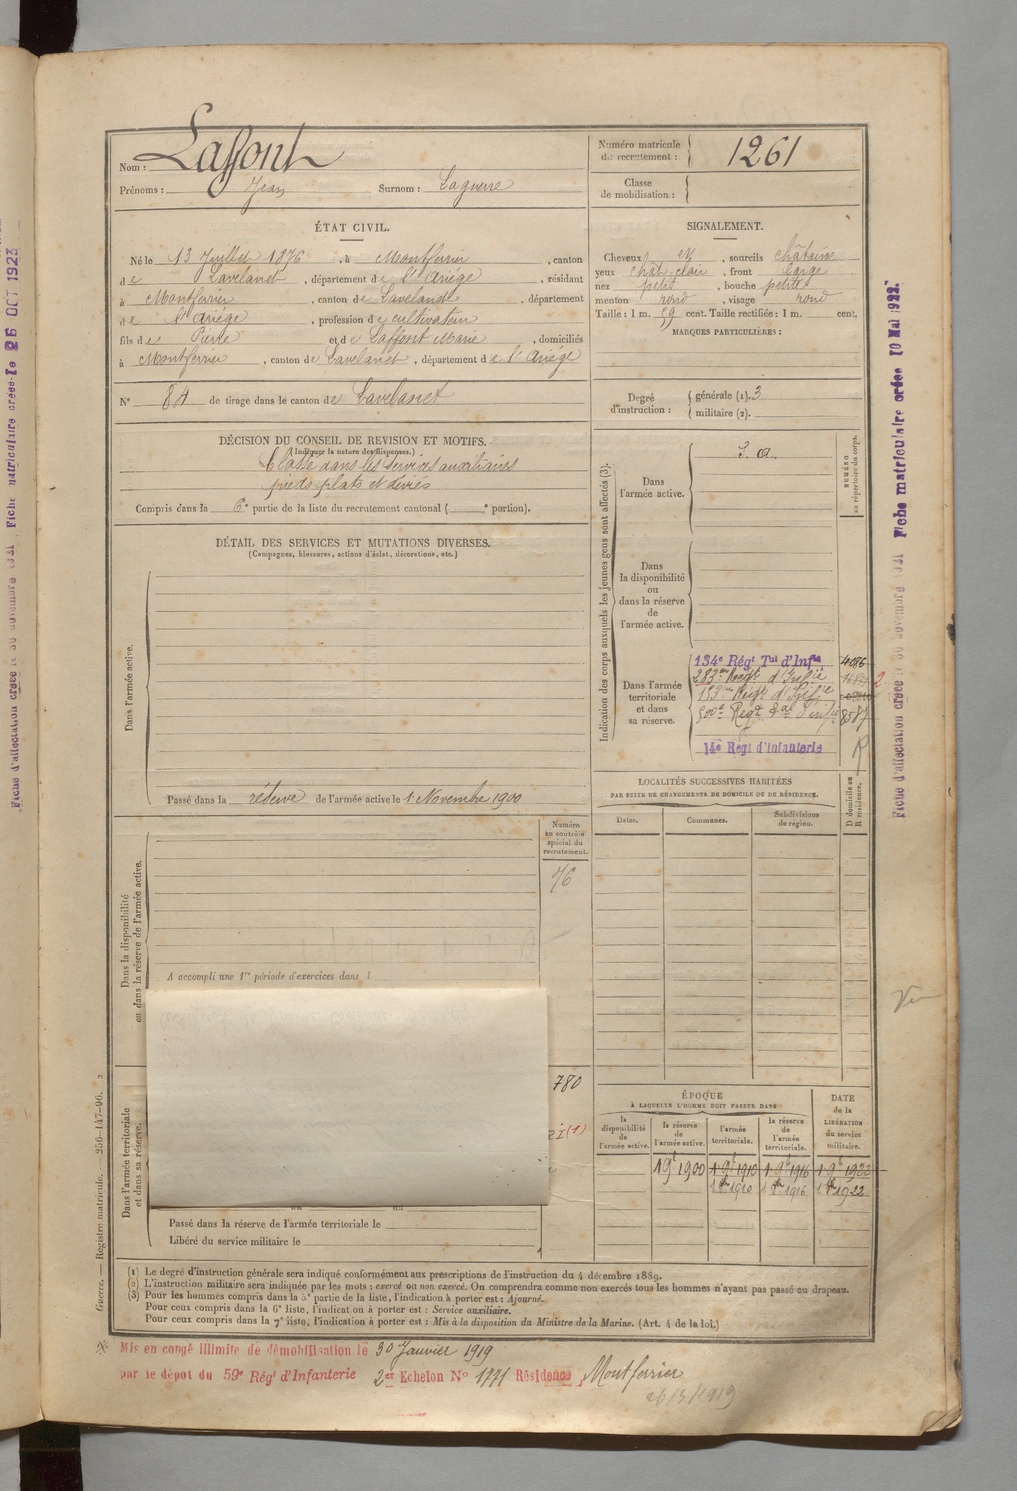 Nom : Laffont
Prénoms : Jean Surnom : Laguerre
Numéro matricule du recrutement : 1261
Classe de mobilisation :
ÉTAT CIVIL.
Né le 13 Juillet 1876, à Montferrier, canton
de Lavelanet, département de l'Ariége, résidant
à Montferrier, canton de Lavelanet, département
de l'Ariége, profession de cultivateur
fils de Pierre et de Laffont Marie, domiciliés
à Montferrier, canton de Lavelanet, département de l'Ariége
N° 84 de tirage dans le canton de Lavelanet
SIGNALEMENT.
Cheveux et, sourcils châtains
yeux chât. clair, front large
nez petit, bouche petite
menton rond, visage rond
Taille : 1 m. 59 cent. Taille rectifiée : 1 m. cent.
MARQUES PARTICULIÈRES :
Degré d'instruction : générale (1). 3
militaire (2).
DÉCISION DU CONSEIL DE REVISION ET MOTIFS.
(Indiquer la nature des dispenses.)
Classé dans les services auxiliaires
pieds plats et déviés
Compris dans la 6e partie de la liste du recrutement cantonal ( e portion).
DÉTAIL DES SERVICES ET MUTATIONS DIVERSES.
(Campagnes, blessures, actions d'éclat, décorations, etc.)
Dans l'armée active.
Passé dans la réserve de l'armée active le 1 Novembre 1900
Dans la disponibilité
ou dans la réserve de l'armée active.
Numéro
au contrôle
spécial du
recrutement.
76
A accompli une 1re période d'exercices dans l
Dans l'armée territoriale
et dans sa réserve.
780
(1)
Passé dans la réserve de l'armée territoriale le
Libéré du service militaire le
Indication des corps auxquels les jeunes gens sont affectés (3).
NUMÉRO
au répertoire du corps.
Dans
l'armée active.
S. a.
Dans
la disponibilité
ou
dans la réserve
de
l'armée active.
Dans l'armée
territoriale
et dans
sa réserve.
134e Régt Tal d'Infie 4086
283me Régt d'Infie
153me Régt d'Infie
500e Regt 8587
14e Régt d'Infanterie R
LOCALITÉS SUCCESSIVES HABITÉES
PAR SUITE DE CHANGEMENTS DE DOMICILE OU DE RÉSIDENCE.
D domicile ou
R résidence.
Dates.
Communes.
Subdivisions
de région.
ÉPOQUE
À LAQUELLE L'HOMME DOIT PASSER DANS
DATE
de la
LIBÉRATION
du service
militaire.
la
disponibilité
de
l'armée active.
la réserve
de
l'armée active.
l'armée
territoriale.
la réserve
de
l'armée
territoriale.
1 9e 1900 1 9e 1910 1 9e 1916 1 9e 1922
1 1910 1 1916 1 1922
(1) Le degré d'instruction générale sera indiqué conformément aux prescriptions de l'instruction du 4 décembre 1889.
(2) L'instruction militaire sera indiquée par les mots : exercé ou non exercé. On comprendra comme non exercés tous les hommes n'ayant pas passé au drapeau.
(3) Pour les hommes compris dans la 5e partie de la liste, l'indication à porter est : Ajourné.
Pour ceux compris dans la 6e liste, l'indication à porter est : Service auxiliaire.
Pour ceux compris dans la 7e liste, l'indication à porter est : Mis à la disposition du Ministre de la Marine. (Art. 4 de la loi.)
Mis en congé illimité de démobilisation le 30 Janvier 1919
par le dépôt du 59e Régt d'Infanterie 2er Echelon N° 1771 Résidence Montferrier
26/3/1919
Guerre. — Registre matricule. — 256-147-96.
Fiche d'affectation créée le 30 novembre 1921 Fiche matriculaire créée le 26 OCT 1923
Fiche d'affectation créée le 30 novembre 1921 Fiche matriculaire créée 10 MAI 1922.
Vu